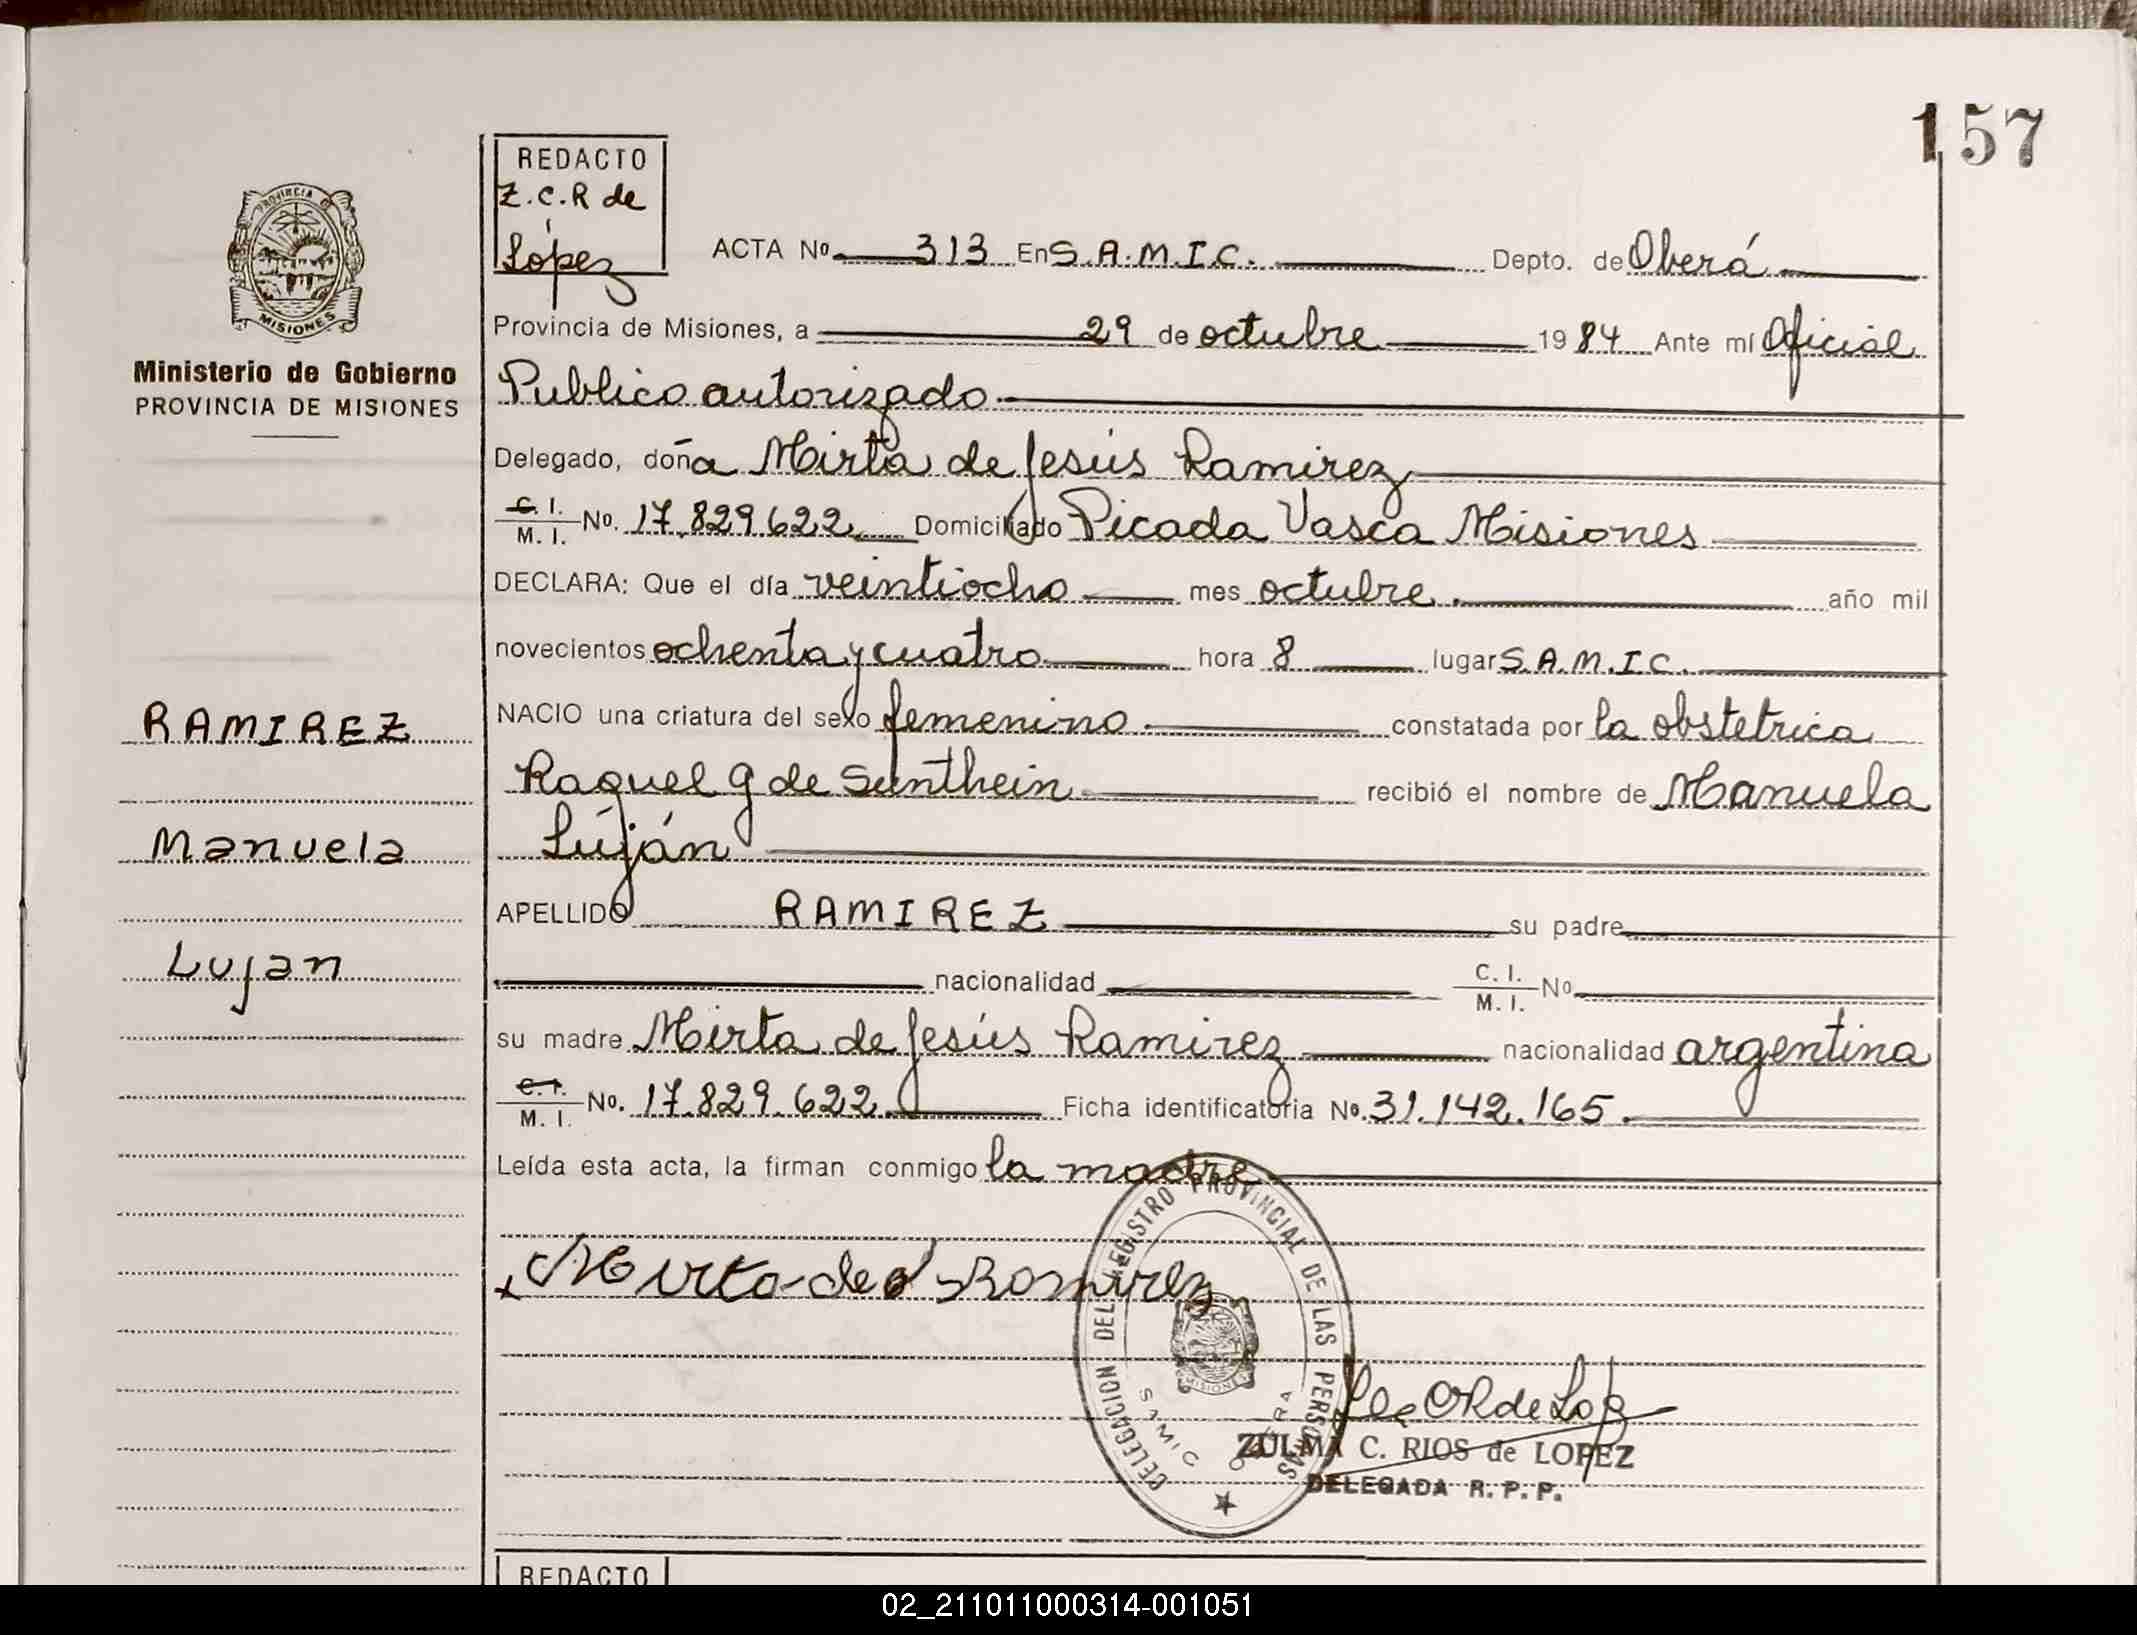 157
REDACTO
Z.C.R de
López
ACTA No 313 En S.A.M.I.C. Depto. de Oberá
Provincia de Misiones, a 29 de octubre 1984 Ante mí Oficial
Publico autorizado
Delegado, doña Mirta de Jesús Ramirez
C. I. / M. I. No. 17.829.622 Domiciliado Picada Vasca Misiones
DECLARA: Que el día veintiocho mes octubre. año mil
novecientos ochenta y cuatro hora 8 lugar S.A.M.I.C.
NACIO una criatura del sexo femenino. constatada por la obstetrica
Raquel G de recibió el nombre de Manuela
Luján
APELLIDO RAMIREZ su padre
nacionalidad C. I. / M. I. No
su madre Mirta de Jesús Ramirez nacionalidad argentina
C. I. / M. I. No. 17.829.622 Ficha identificatoria No. 31.142.165.
Leída esta acta, la firman conmigo la madre
Mirta de J Ramirez
PROVINCIA DE
MISIONES
Ministerio de Gobierno
PROVINCIA DE MISIONES
RAMIREZ
Manuela
Lujan
DELEGACION DEL REGISTRO PROVINCIAL DE LAS PERSONAS
MISIONES
SAMIC OBERA
ZULMA C. RIOS de LOPEZ
DELEGADA R. P. P.
REDACTO
02_211011000314-001051